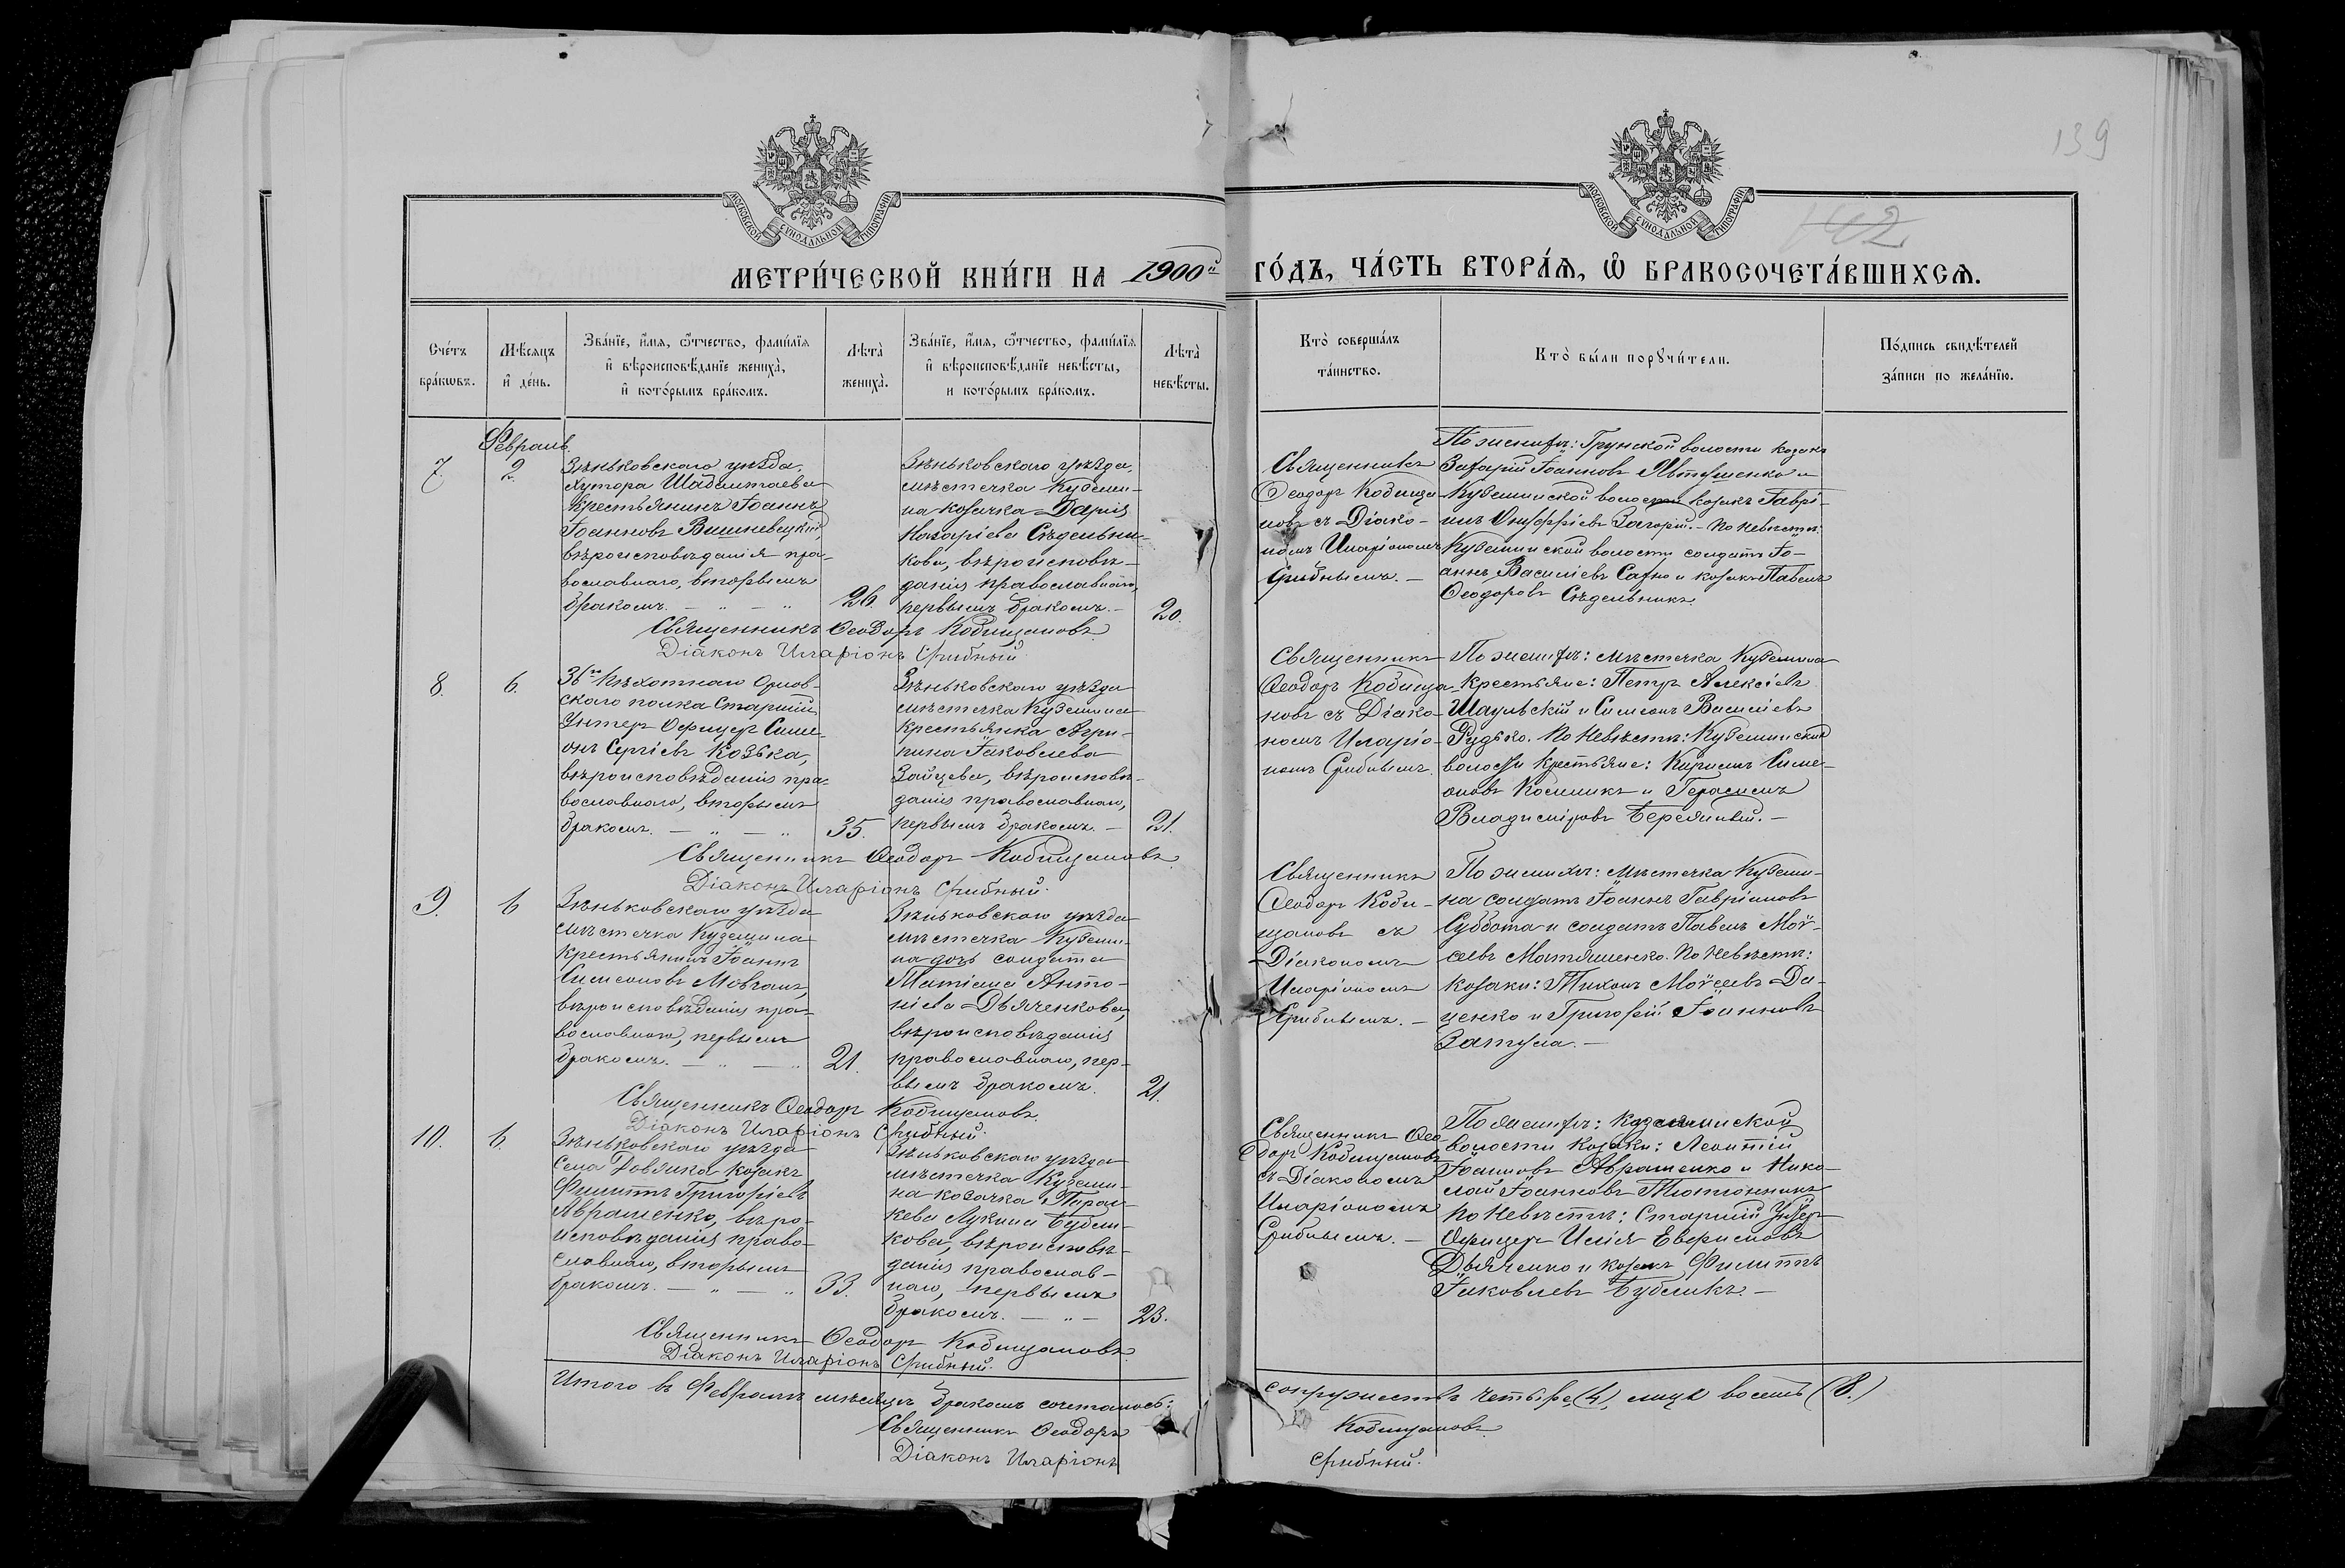 139
142
МОСКОВСКОЙ СѴНОДАЛЬНОЙ ТИПОГРАФІИ
МОСКОВСКОЙ СѴНОДАЛЬНОЙ ТИПОГРАФІИ
МЕТРИ́ЧЕСКОЙ КНИ́ГИ НА 1900й ГО́ДЪ, ЧА́СТЬ ВТОРА́Ѧ, Ѡ҆ БРАКОСОЧЕТА́ВШИХСѦ.
Сче́тъ
бра́кѡвъ.
Мѣ́сѧцъ
и҆ де́нь.
Зва́нїе, и҆́мѧ, ѻ҆́тчество, фамѝлїѧ
и҆ вѣроисповѣ́данїе жениха̀,
и҆ кото́рымъ бра́комъ.
Лѣта̀
жениха̀.
Зва́нїе, и҆́мѧ, ѻ҆́тчество, фамѝлїѧ
и҆ вѣроисповѣ́данїе невѣ́сты,
и кото́рымъ бра́комъ.
Лѣта̀
невѣ́сты.
Кто̀ соверша́лъ
та́инство.
Кто̀ бы́ли порꙋчи́тели.
По́дпись свидѣ́телей
за́писи по жела́нїю.
Февраль
7.
2.
Зѣньковскаго уѣзда,
хутора Шабалтаева
крестьянинъ Іоаннъ
Іоанновъ Вишневецкій,
вѣроисповѣданія пра-
вославнаго, вторымъ
бракомъ. — „ — „
26.
Зѣньковскаго уѣзда,
мѣстечка Куземи-
на козачка Дарія
Назаріева Сѣдельни-
кова, вѣроисповѣ-
данія православнаго,
первымъ бракомъ. —
20.
Священникъ
Ѳеодоръ Кобища-
новъ съ Діако-
номъ Иларіономъ
Грибнымъ. —
По женихѣ: Грунской волости козакъ
Захарій Іоанновъ и
Куземинской волости козакъ Гаврі-
илъ Онуфріевъ Загорій. — По невѣстѣ:
Куземинской волости солдатъ Іо-
аннъ Василіевъ Сахно и козакъ Павелъ
Ѳеодоровъ Сѣдельникъ.
Священникъ Ѳеодоръ Кобищановъ
Діаконъ Иларіонъ Грибный.
8.
6.
36го Пѣхотнаго Орлов-
скаго полка Старшій
Унтеръ Офицеръ Симе-
онъ Сергіевъ Козька,
вѣроисповѣданія пра-
вославнаго, вторымъ
бракомъ. — „ — „
35.
Зѣньковскаго уѣзда
мѣстечка Куземина
крестьянка Агри-
пина Іаковлева
Зайцева, вѣроисповѣ-
данія православнаго,
первымъ бракомъ. —
21.
Священникъ
Ѳеодоръ Кобища-
новъ съ Діако-
номъ Иларіо-
номъ Грибнымъ.
По женихѣ: мѣстечка Куземина
крестьяне: Петръ Алексіевъ
Шаульскій и Симеонъ Василіевъ
Рудько. По невѣстѣ: Куземинской
волости крестьяне: Кириллъ Симе-
оновъ и Герасимъ
Владиміровъ
Священникъ Ѳеодоръ Кобищановъ
Діаконъ Иларіонъ Грибный.
9.
6
Зѣньковскаго уѣзда
мѣстечка Куземина
крестьянинъ Іоаннъ
Симеоновъ Мовчанъ,
вѣроисповѣданія пра-
вославнаго, первымъ
бракомъ. — „ — „
21.
Зѣньковскаго уѣзда
мѣстечка Куземи-
на дочь солдата
Матіана Анто-
ніева Дьяченкова,
вѣроисповѣданія
православнаго, пер-
вымъ бракомъ.
21.
Священникъ
Ѳеодоръ Коби-
щановъ съ
Діакономъ
Иларіономъ
Грибнымъ. —
По женихѣ: мѣстечка Куземи-
на солдатъ Іоаннъ Гавріиловъ
Суббота и солдатъ Павелъ Мой-
сеевъ Матяшенко. По невѣстѣ:
козаки: Тихонъ Мойсеевъ Да-
ценко и Григорій Іоанновъ
Затула. —
Священникъ Ѳеодоръ Кобищановъ
Діаконъ Иларіонъ Грибный.
10.
6.
Зѣньковскаго уѣзда
села козакъ
Филиппъ Григоріевъ
Авраменко, вѣро-
исповѣданія право-
славнаго, вторымъ
бракомъ. — „ — „
33.
Зѣньковскаго уѣзда
мѣстечка Куземи-
на козачка Парас-
кева Лукина Бубли-
кова, вѣроисповѣ-
данія православ-
наго, первымъ
бракомъ. — „ —
23.
Священникъ Ѳео-
доръ Кобищановъ
съ Діакономъ
Иларіономъ
Грибнымъ. —
По женихѣ: Куземинской
волости козаки: Леонтій
Іоанновъ Авраменко и Нико-
лай Іоанновъ Тютюнникъ
по невѣстѣ: Старшій Унтеръ
Офицеръ Илія Евфимовъ
Дьяченко и козакъ Филиппъ
Іаковлевъ Бубликъ. —
Священникъ Ѳеодоръ Кобищановъ
Діаконъ Иларіонъ Грибный.
Итого въ Февралѣ мѣсяцѣ бракомъ сочеталось: супружествъ четыре (4), лицъ восемь (8.)
Священникъ Ѳеодоръ Кобищановъ
Діаконъ Иларіонъ Грибный.